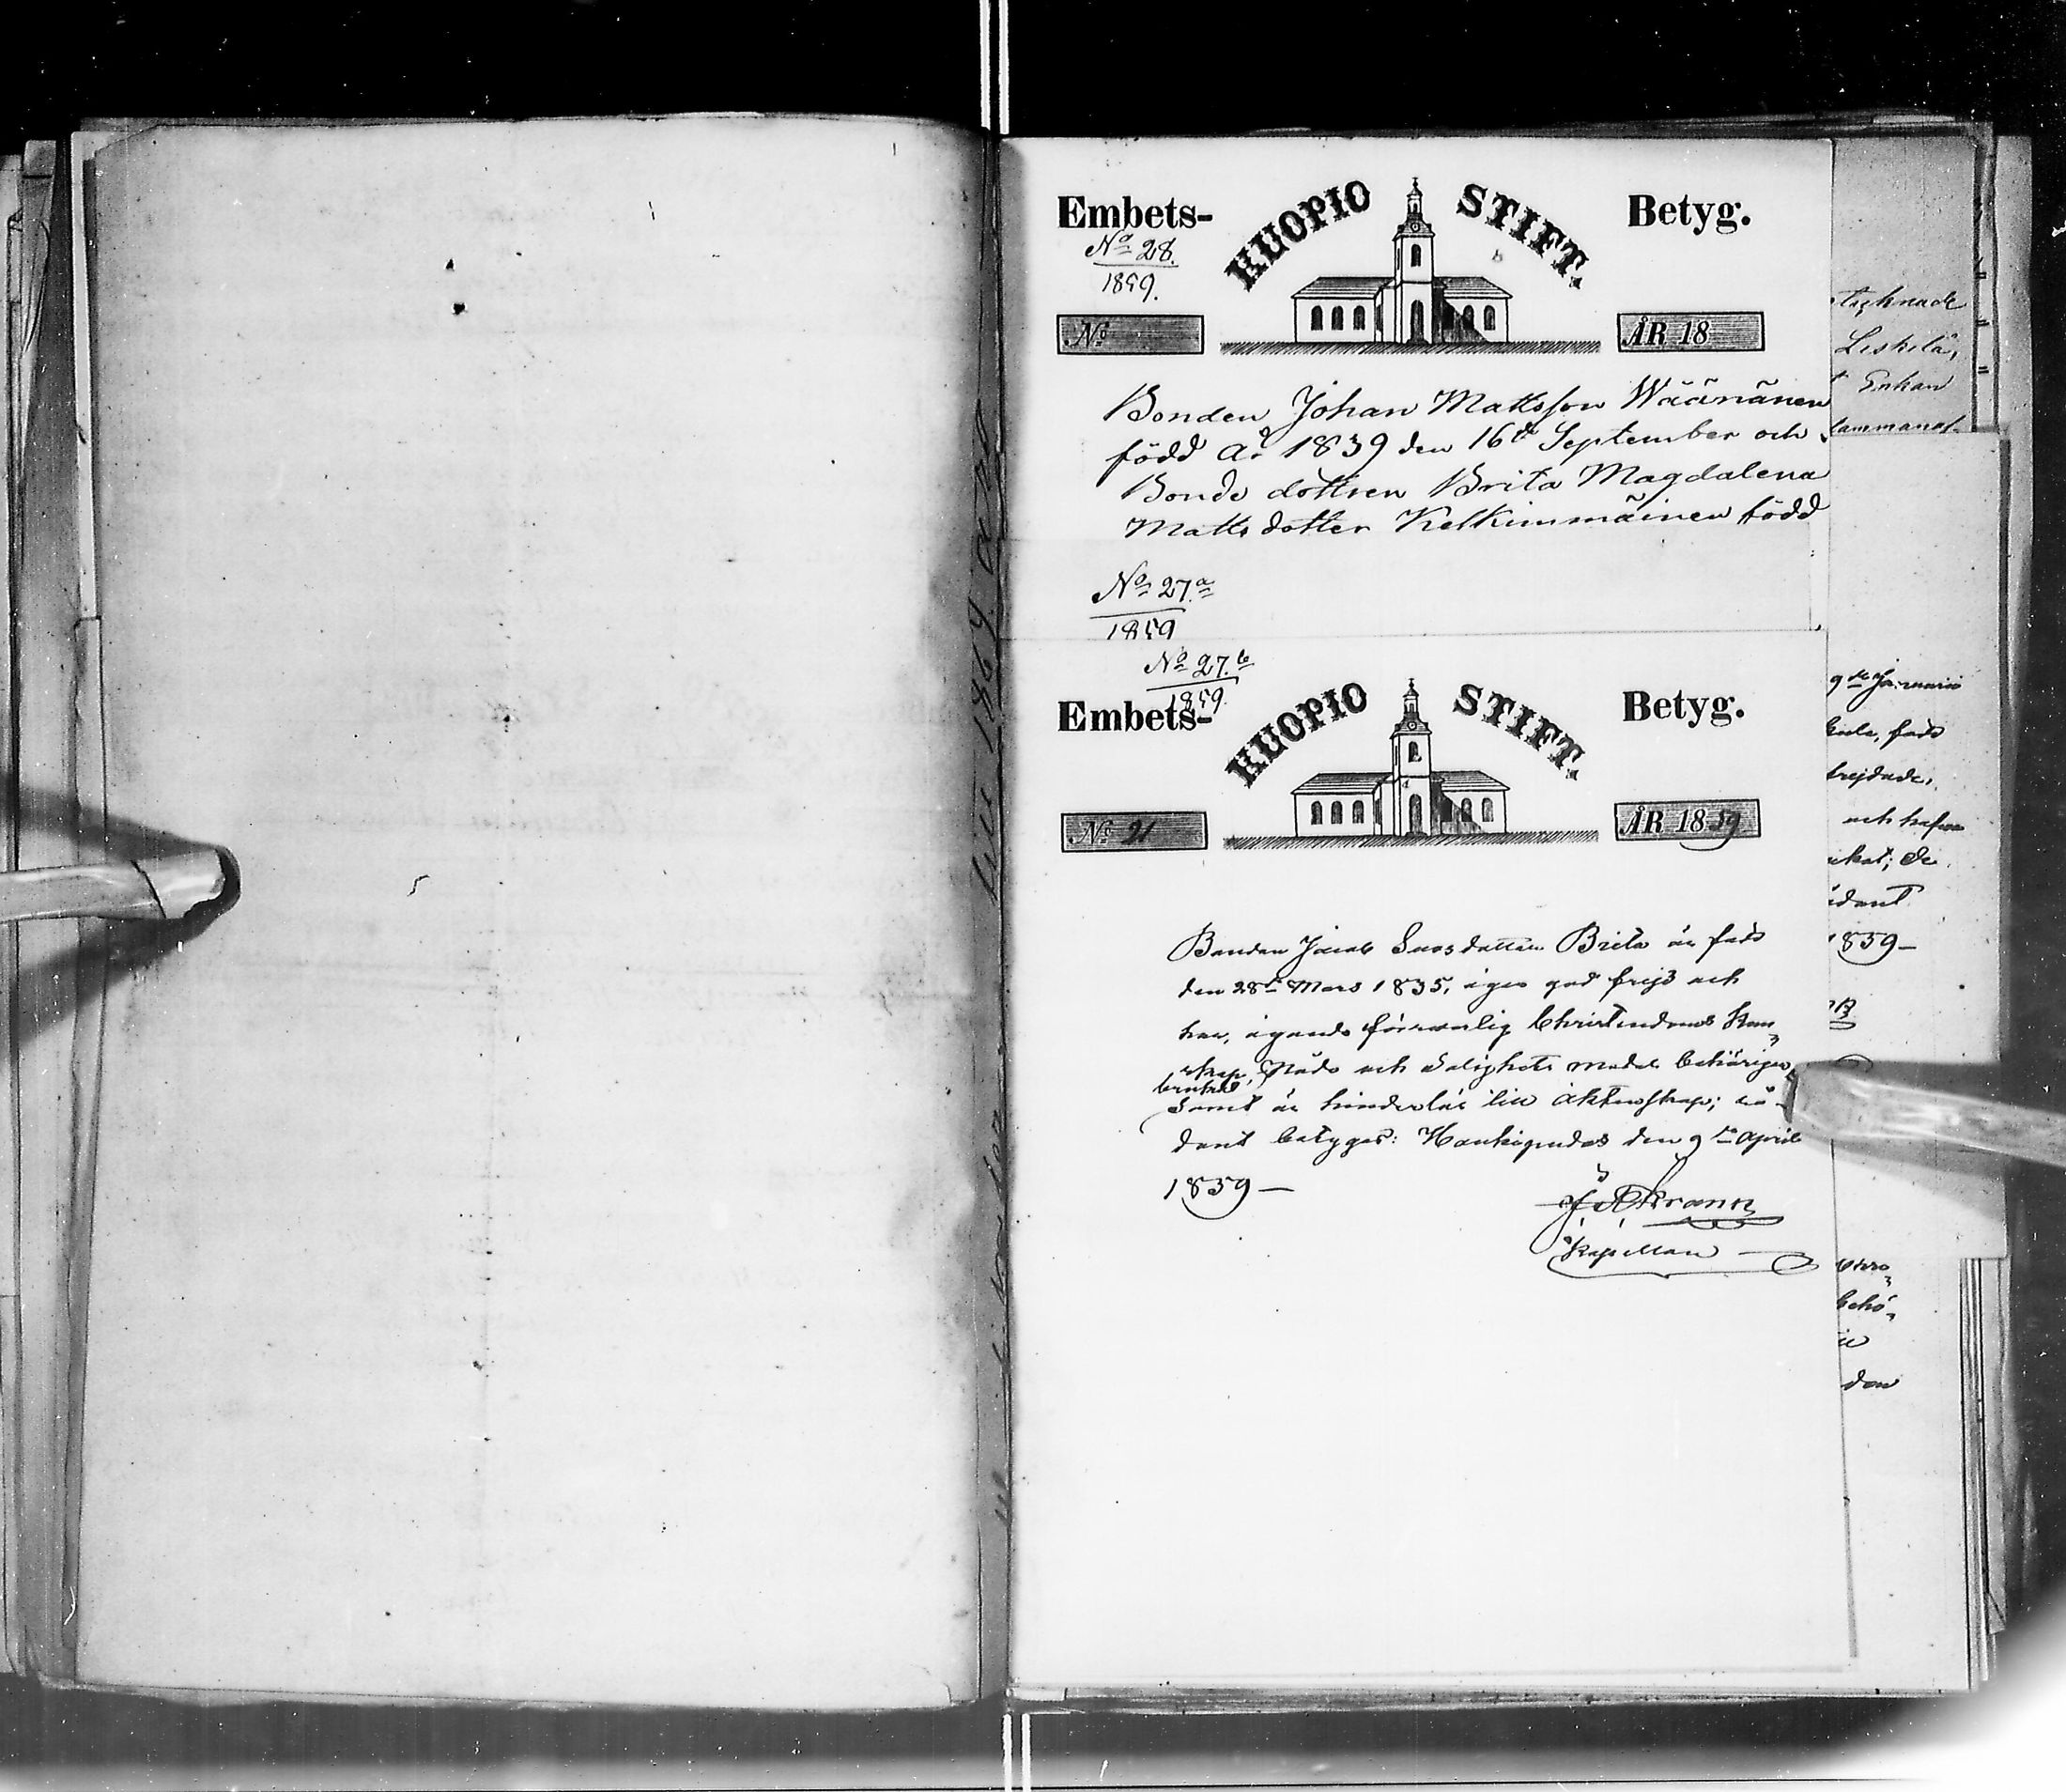 Embets-
HUOPIO STIFT.
Betyg.
No 28.
1859.
No
ÅR 18
Bonden Johan Mattsson Wäänänen
född År 1839 den 16de September och
Bonde dottren Brita Magdalena
Matts dotter Kelkimmäinen född
No 27.a
1859
No 27.b
1859.
Embets-
HUOPIO STIFT.
Betyg.
No 21
ÅR 1859
Bonden Jacob Dotteren Brita är född
den 28de Mars 1835, äger god frejd och
har, ägande försvarlig Christendoms kun-
skap, Nåde och Salighets medel behörigen
brukat
samt är hinderlös till äktenskap; så-
dant betygar: Hankigudas den 9de April
1859—
Kapellan
tecknade
Leskelä,
Enkan
9de Januarii
född
frejdade,
och hafva
brukat; de
1859—
behö-
den